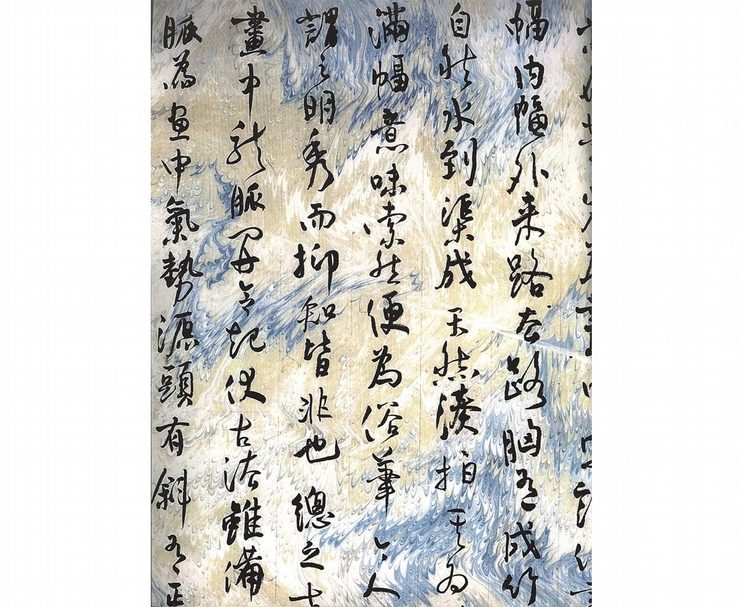 幅内幅外来路去路胸有成竹
自然水到渠成天然湊拍其為
滿幅意味索然便為俗筆今人
謂之明秀而抑知皆非也總之
畫中龍脈開合起伏古法雖備
脈為畫中氣勢源頭有斜有正